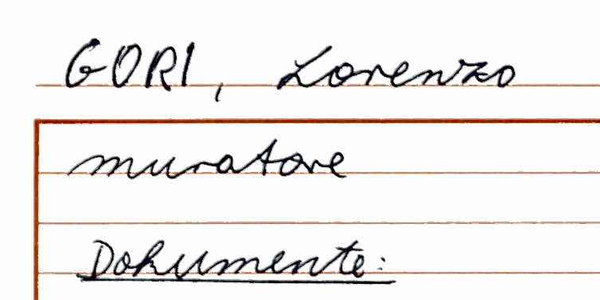 GORI, Lorenzo
muratore
Dokumente: